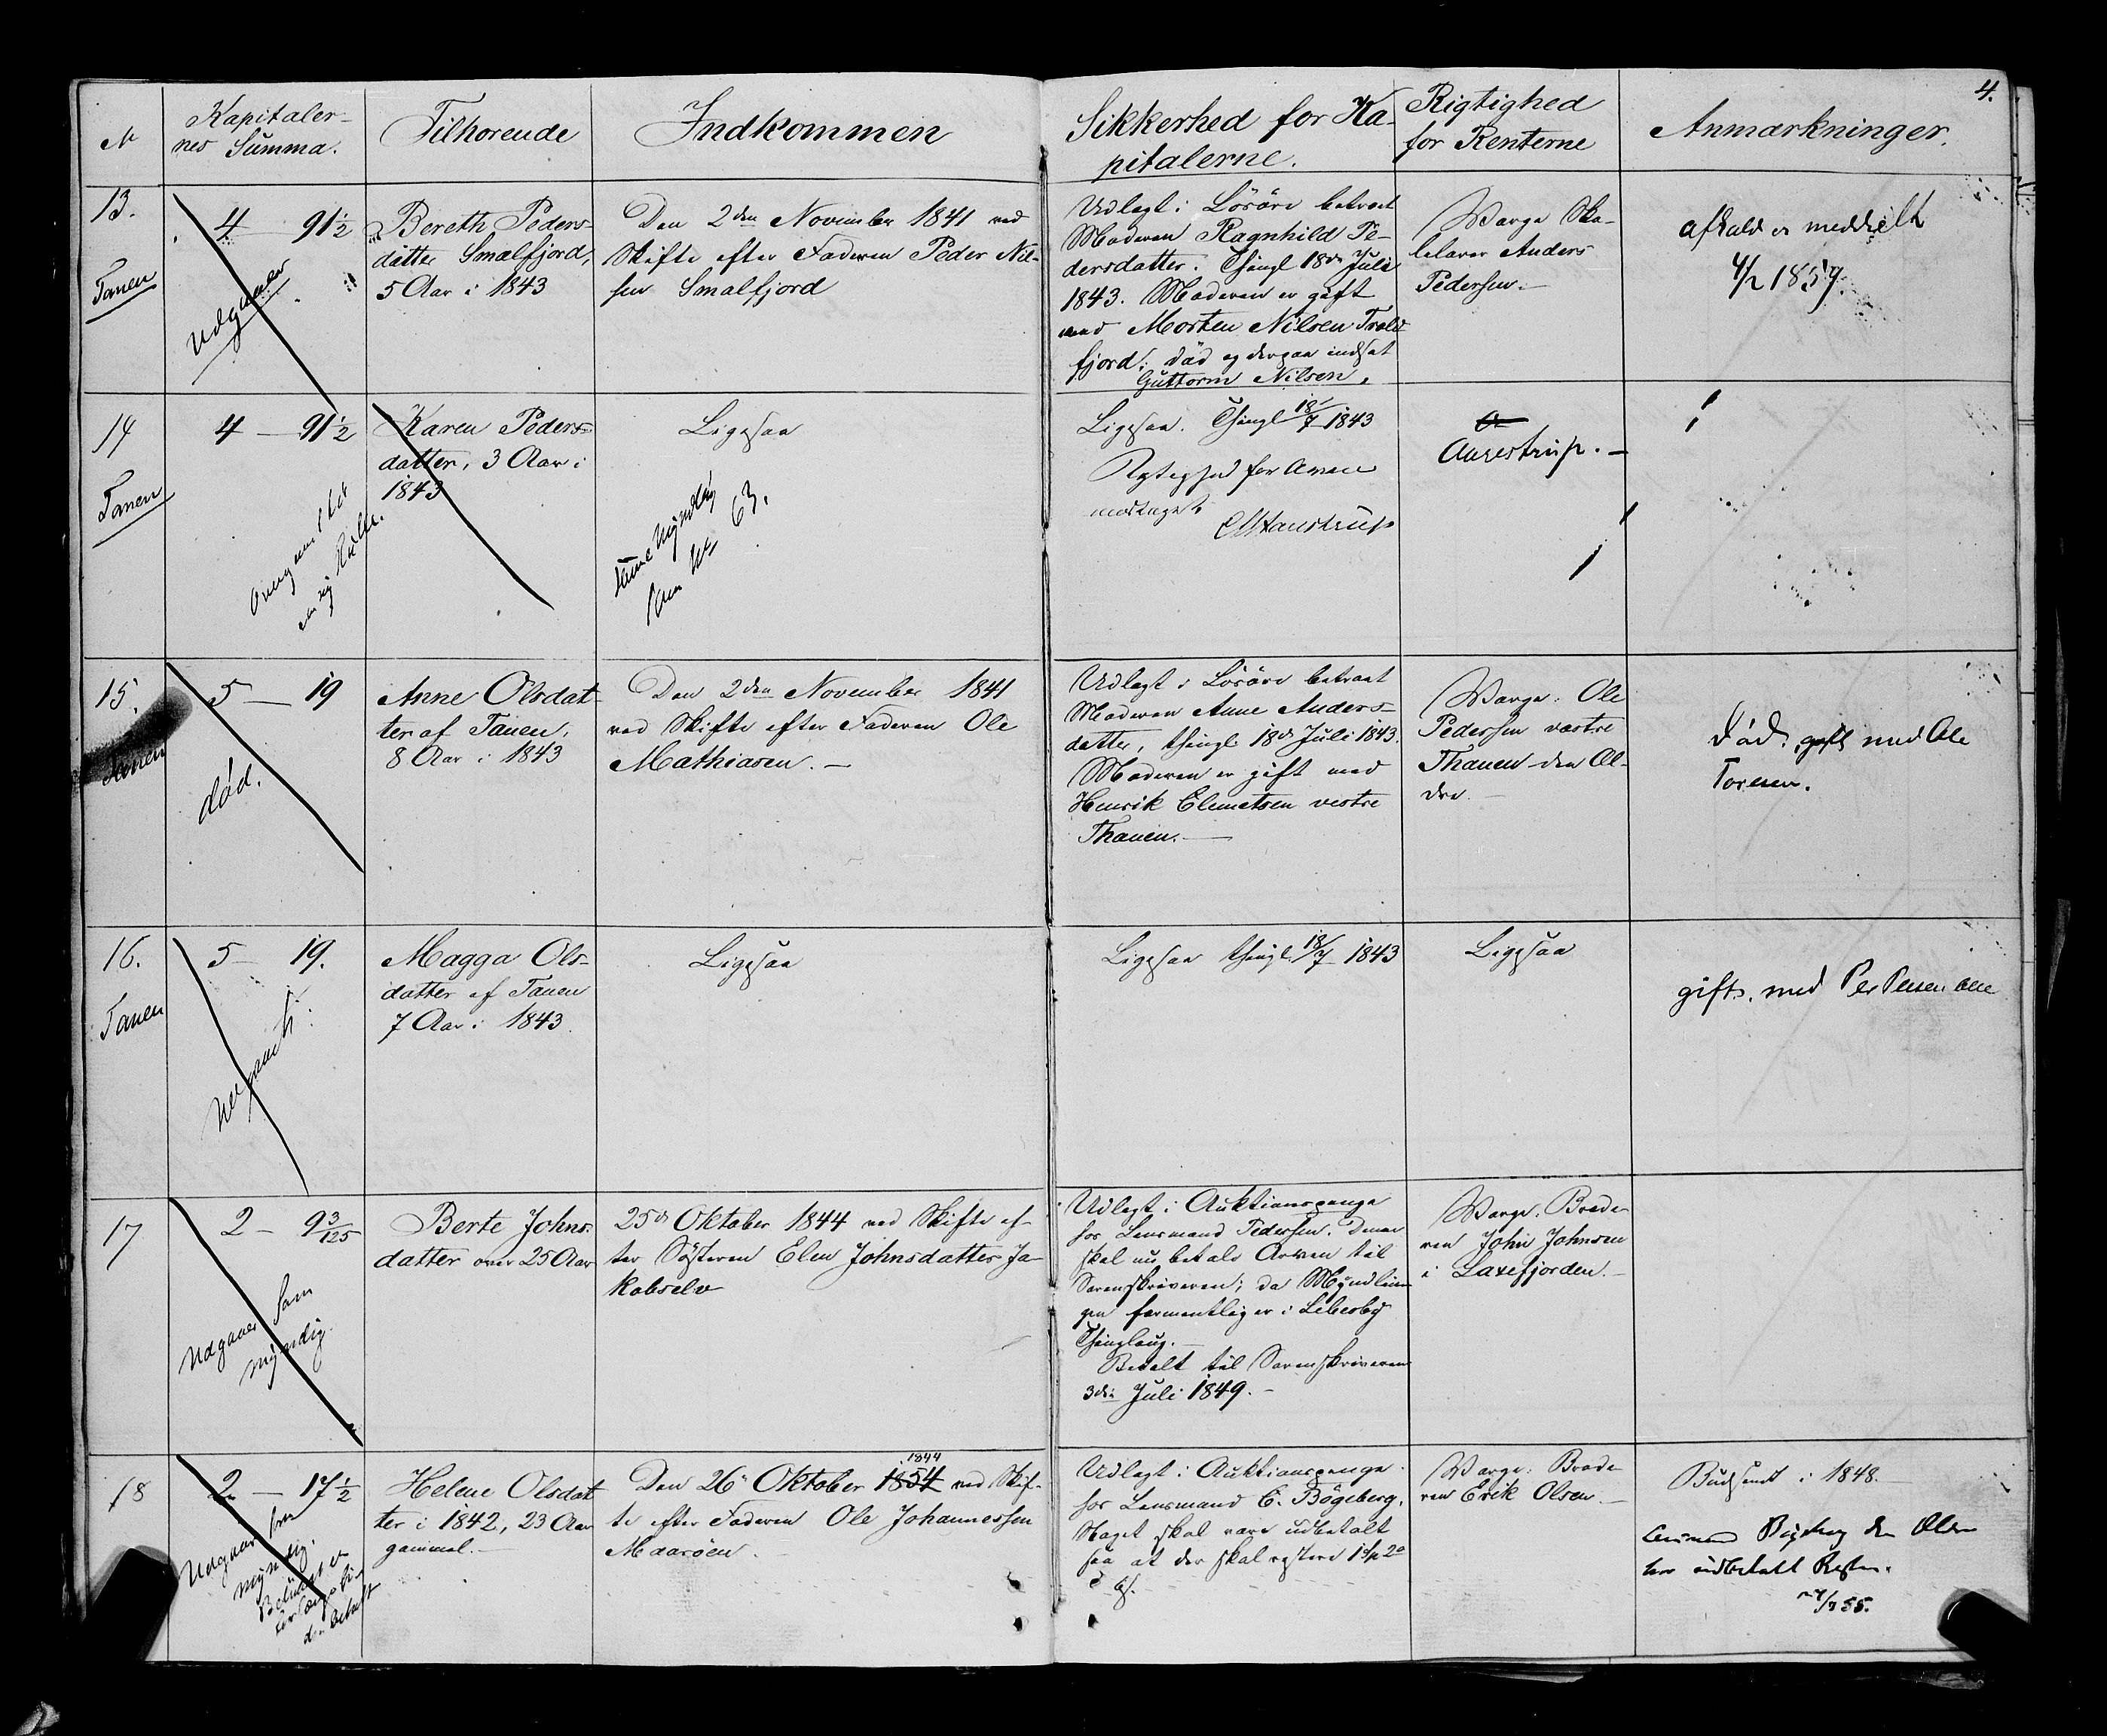 4.
N
Kapitaler-
nes Summa.
Tilhorende
Indkommen
Sikkerhed for Ka-
pitalerne.
Rigtighed
for Renterne
Anmærkninger.
13.
Tanen
4 — 91½
Udgaaer
Bereth Peders-
datter Smalfjord,
5 Aar i 1843
Den 2den November 1841 ved
Skifte efter Faderen Peder Nil-
sen Smalfjord
Udlagt i Lösöre betroet
Moderen Ragnhild Pe-
dersdatter. Thingl. 18de Juli
1843. Moderen er gift
med Morten Nilsen Trold
fjord; död og derpaa indsat
Guttorm Nilsen.
Værge Sko-
lelærer Anders
Pedersen.—
afkald er meddeelt
4/2 1859.
14
Tanen
4 — 91½
Karen Peders-
datter, 3 Aar i
1843
Ligesaa
63.
Ligesaa. Thingl. 18/7 1843
for Arven
modtaget
Aarestrup.—
15.
Tanen
5 — 19
död.
Anne Olsdat-
ter af Tanen,
8 Aar i 1843
Den 2den November 1841
ved Skifte efter Faderen Ole
Mathiasen.—
Udlagt i Lösöre betroet
Moderen Anne Anders-
datter, thingl. 18de Juli 1843.
Moderen er gift med
Henrik Clemetsen vestre
Thanen.—
Værge: Ole
Pedersen vestre
Thanen den Æl-
dre.—
Död. gift med Ole
Toresen.
16.
Tanen
5 — 19.
Magga Ols-
datter af Tanen
7 Aar i 1843.
Ligesaa
Ligesaa thingl. 18/7 1843
Ligesaa
gift. med Per
17
2 — 9 3/125
Udgaaer som
myndig.
Berte Johns-
datter over 25 Aar
25de Oktober 1844 ved Skifte ef-
ter Søsteren Elen Johnsdatter Ja-
kobselv
Udlagt i Auktionspenge
hos Lensmand Pedersen. Denne
skal nu betale Arven til
Sorenskriveren; da Myndlin-
gen formentlig er i Lebesby
Thinglaug.—
Betalt til Sorenskriveren
3die Juli 1849.—
Værge: Brode-
ren John Johnsen
i Laxefjorden.—
18
2 — 17½
Udgaaer som
myndig.
Beløbet er
Helene Olsdat
ter i 1842, 23 Aar
gammel.—
1844
Den 26de Oktober 1854 ved Skif-
te efter Faderen Ole Johannessen
Maasöen.
Udlagt i Auktionspenge
hos Lensmand C. Bögeberg.
Noget skal være udbetalt
saa at der skal restere 1
Værge: Brode-
ren Erik Olsen.—
Budsendt i 1848.
har udbetalt Resten.